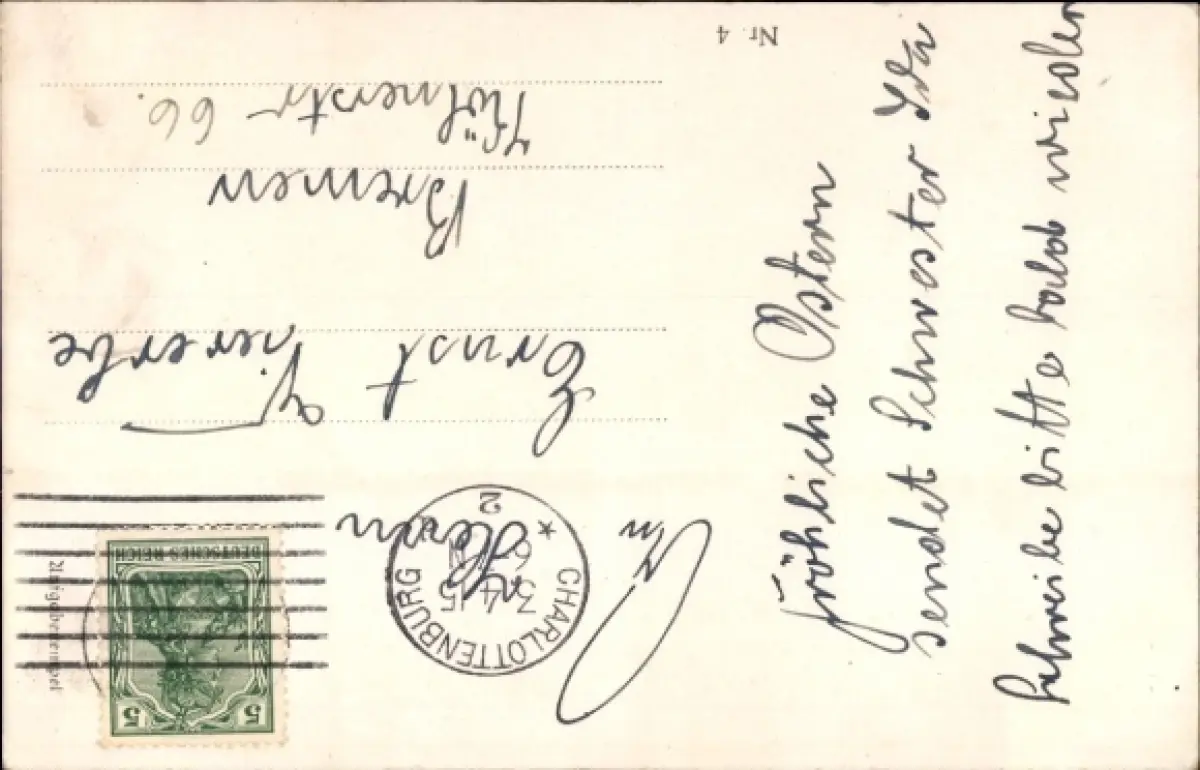 Nr. 4
fröhliche Ostern
sendet Schwester Ida
schreibe bitte bald wieder
An
Herrn
Ernst
Bremen
66.
CHARLOTTENBURG
3.4.15
6
* 2
DEUTSCHES REICH
5 5